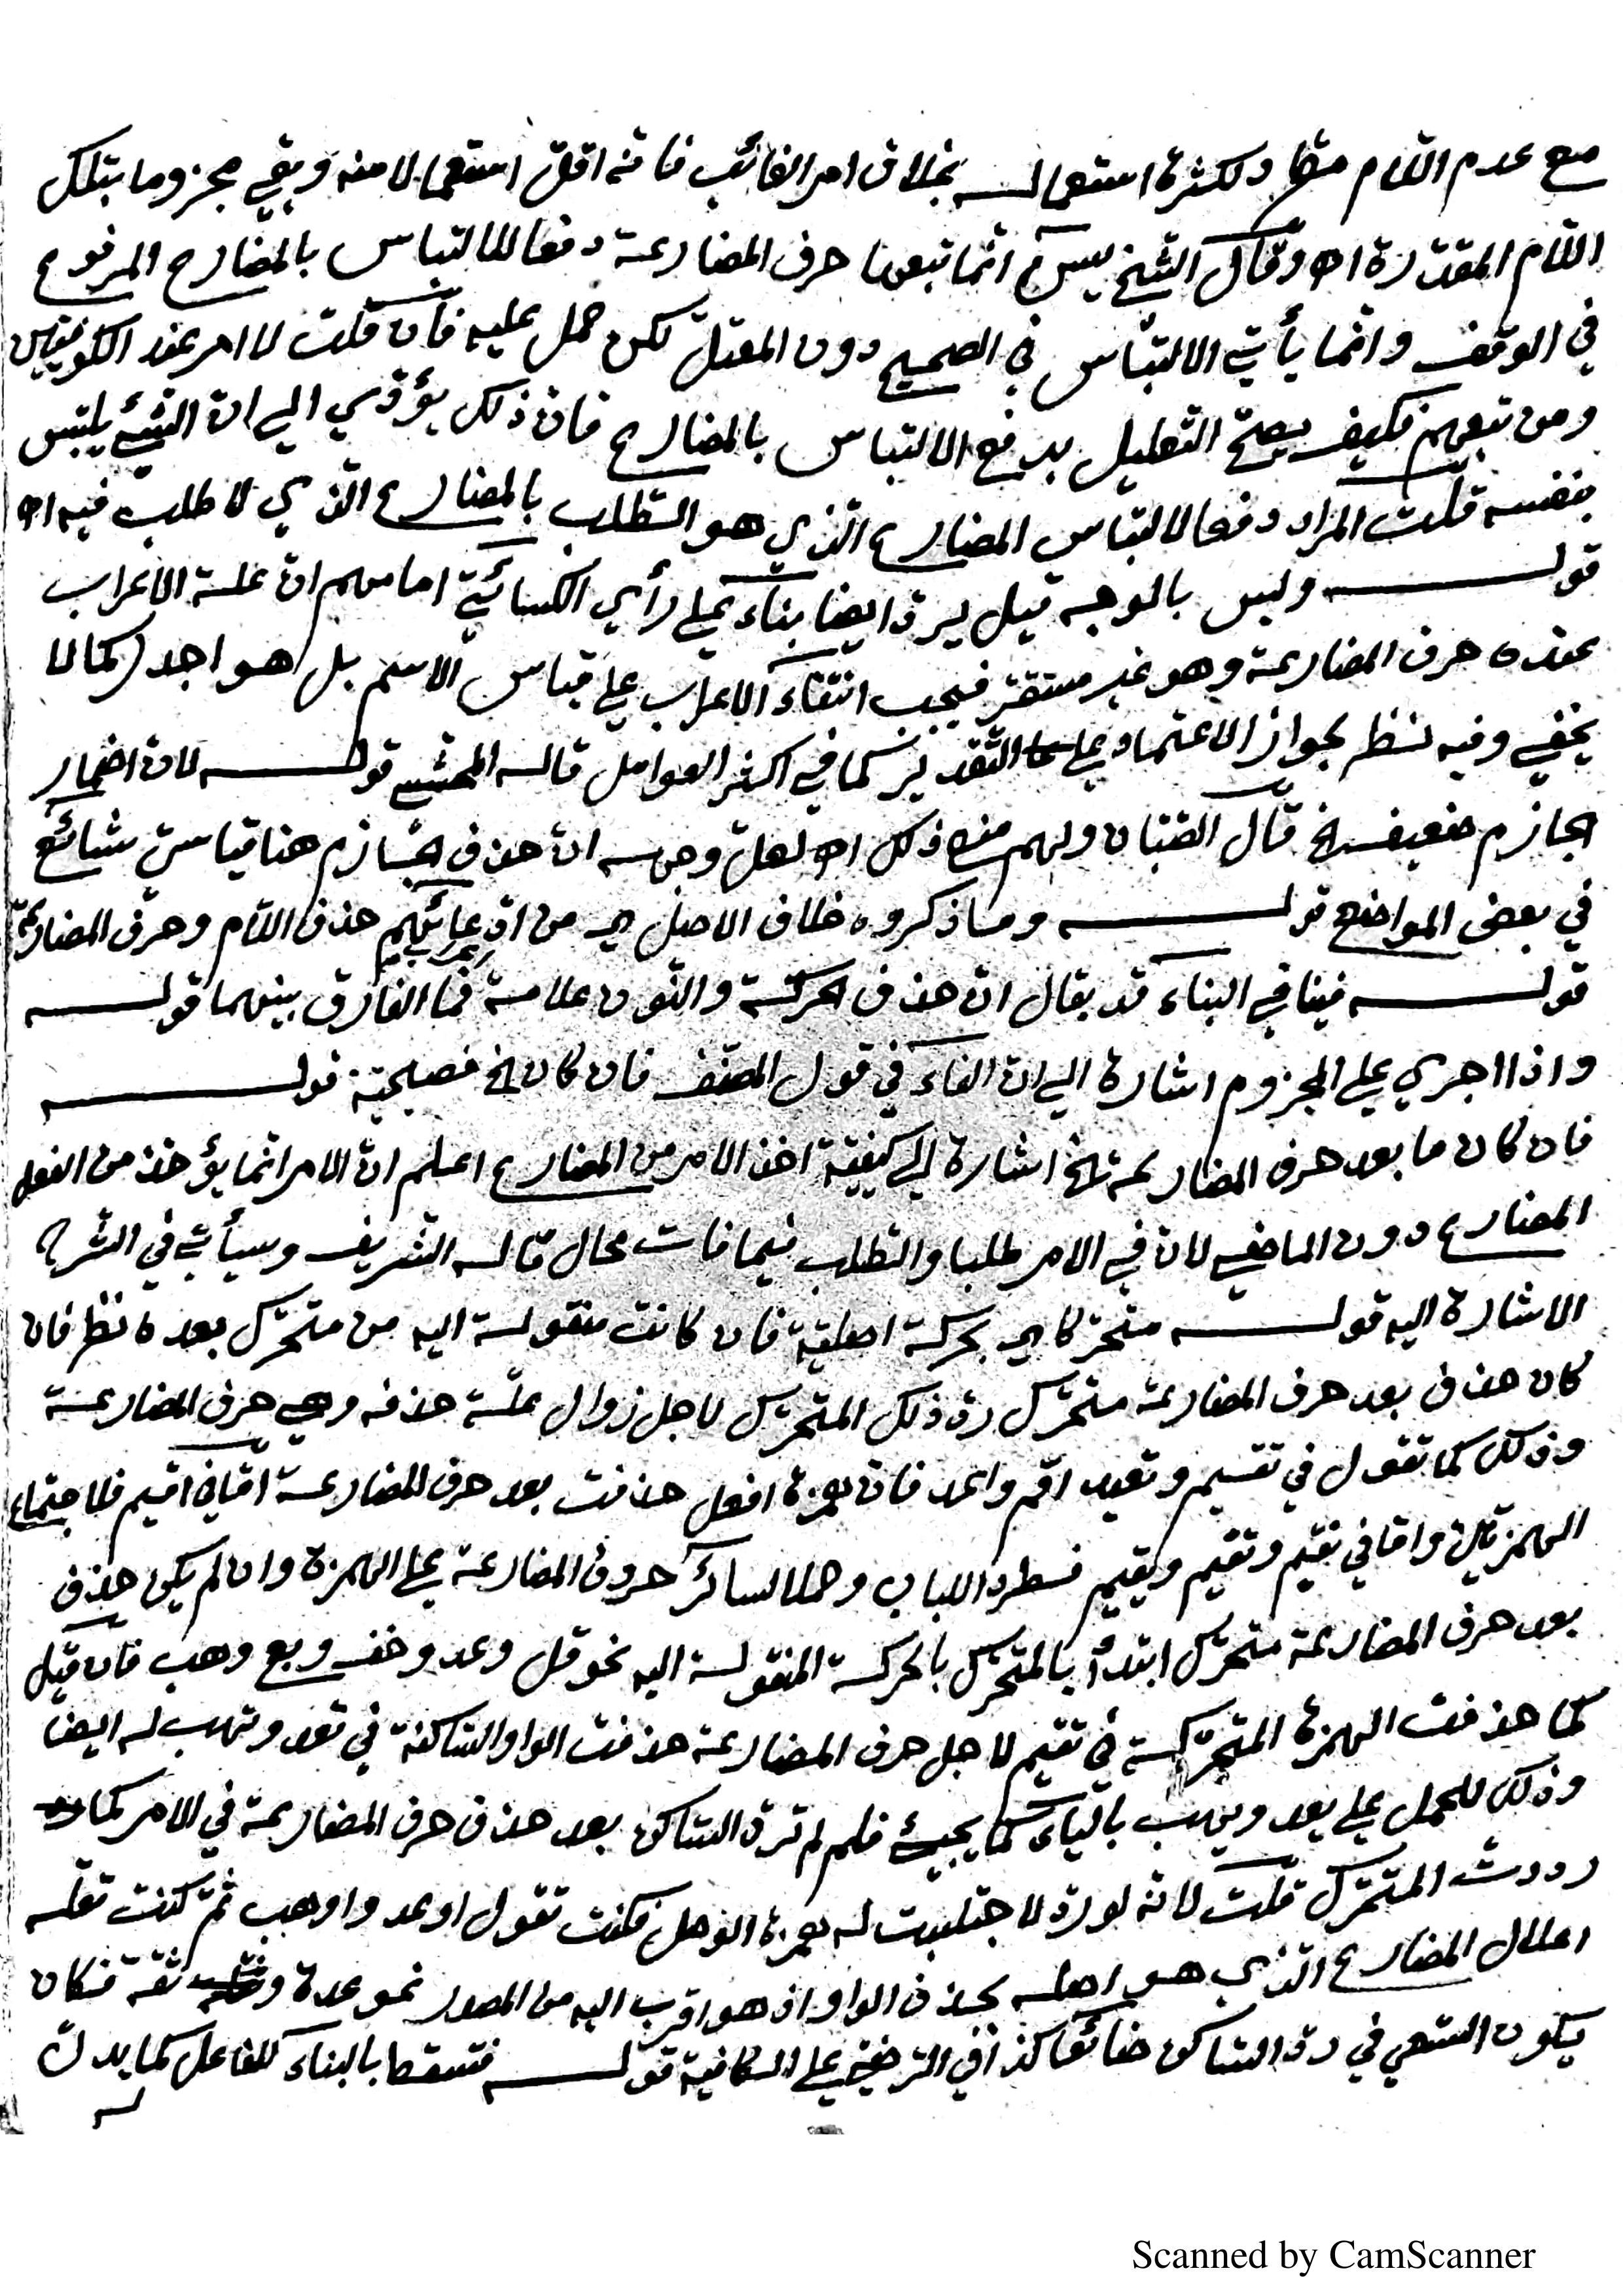 مع عدم اللام مثلها ولكثرة استعماله بخلاف امر الغائب فانه اقل استعمالا منه وبقي مجزوما بتلك
اللام المقدرة اه وقال الشيخ يس انما تبعها حرف المضارعة دفعا للالتباس بالمضارع المرفوع
في الوقف وانما يأتي الالتباس في الصحيح دون المعتل لكن حمل عليه فان قلت لا امر عند الكوفيين
ومن تبعهم فكيف يصح التعليل بدفع الالتباس بالمضارع فان ذلك يؤدي الي ان الشيئ يلتبس
بنفسه قلت المراد دفع الالتباس المضارع الذي هو الطلب بالمضارع الذي لا طلب فيه اه
قوله وليس بالوجه قيل يرد ايضا بناء علي رأي الكسائي امامهم ان علة الاعراب
عنده حرف المضارعة وهو غير مستقر فيجب انتفاء الاعراب علي قياس الاسم بل هو اجدر كما لا
يخفي وفيه نظر لجواز الاعتماد علي التقدير كما في اكثر العوامل قاله المحشي قوله لان اضمار
الجازم ضعيف الخ قال الصبان ولهم منع ذلك اه لعل وجهه ان حذف الجازم هنا قياس شائع
في بعض المواضع قوله وما ذكروه خلاف الاصل اي من ادعائهم حذف اللام وحرف المضارعة
قوله فينافي البناء قد يقال ان حذف الحركة والنون علامة فما الفارق بينهما قوله
واذا اجري علي المجزوم اشارة الي ان الفاء في قول المصنف فان كان الخ فصيحية قوله
فان كان ما بعد حرف المضارعة الخ اشارة الي كيفية اخذ الامر من المضارع اعلم ان الامر انما يؤخذ من الفعل
المضارع دون الماضي لان في الامر طلبا والطلب فيما فات محال قاله الشريف وسيأتي في الشرح
الاشارة اليه قوله متحركا اي بحركة اصلية فان كانت منقولة اليه من متحرك بعده نظر فان
كان حذف بعد حرف المضارعة متحرك رد ذلك المتحرك لاجل زوال علة حذفه وهي حرف المضارعة
وذلك كما تقول في تقيم وتعيد اقم واعد فان همزة افعل حذفت بعد حرف المضارعة اما في اقيم فلاجتماع
الهمزتين واما في نقيم وتقيم ويقيم فطردا للباب وحملا لسائر حروف المضارعة علي الهمزة وان لم يكن حذف
بعد حرف المضارعة متحرك ابتدأ بالمتحرك بالحركة المنقولة اليه نحو قل وعد وخف وبع وهب فان قيل
كما حذفت الهمزة المتحركة في تقيم لاجل حرف المضارعة حذفت الواو الساكنة في تعد وتهب له ايضا
وذلك للحمل علي يعد ويهب بالياء كما يجيئ فلم لم ترد الساكن بعد حذف حرف المضارعة في الامر كما
رددت المتحرك قلت لانه لو رد لاجتلبت له همزة الوصل فكنت تقول اوعد واوهب ثم كنت تعله
اعلال المضارع الذي هو اصله بحذف الواو اذ هو اقرب اليه من المصدر نحو عدة وثقة فكان
يكون السعي في رد الساكن ضائعا كذا في الرضي علي الكافية قوله فتسقط بالبناء للفاعل كما يدل
له
Scanned by CamScanner